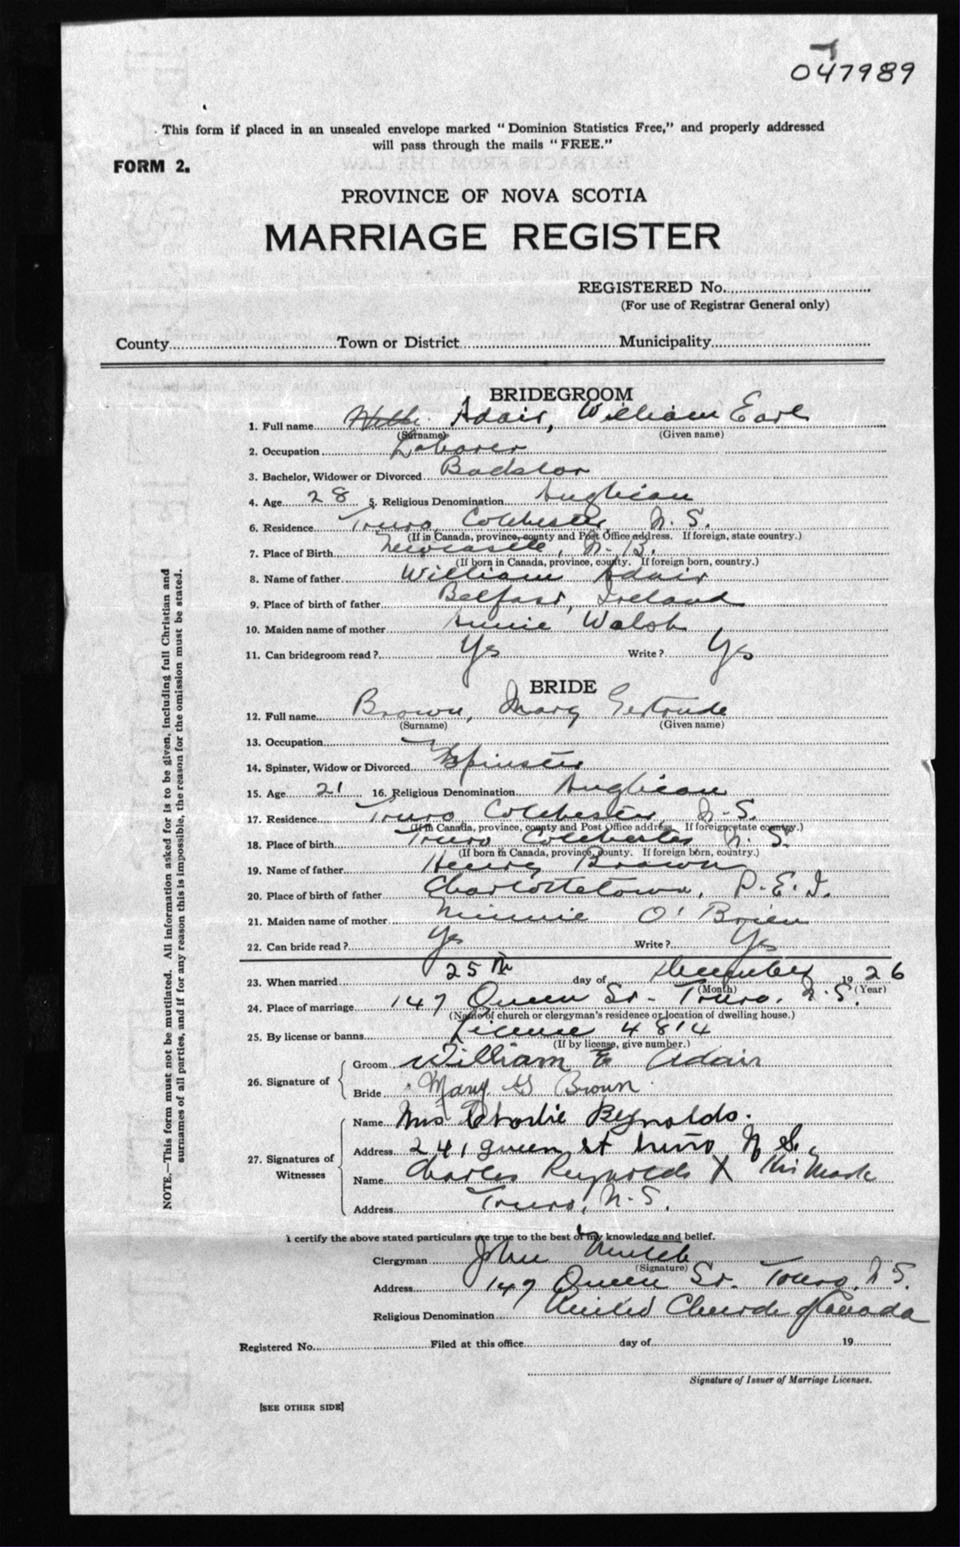 047989
This form if placed in an unsealed envelope marked "Dominion Statistics Free," and properly addressed
will pass through the mails "FREE."
FORM 2.
PROVINCE OF NOVA SCOTIA
MARRIAGE REGISTER
REGISTERED No.
(For use of Registrar General only)
County Town or District Municipality
BRIDEGROOM
1. Full name Adair, William Earl
(Surname) (Given name)
2. Occupation Laborer
3. Bachelor, Widower or Divorced Bachelor
4. Age 28 5. Religious Denomination Anglican
6. Residence Truro, Colchester, N. S.
(If in Canada, province, county and Post Office address. If foreign, state country.)
7. Place of Birth Newcastle, N. B.
(If born in Canada, province, county. If foreign born, country.)
8. Name of father William Adair
9. Place of birth of father Belfast, Ireland
10. Maiden name of mother Annie Walsh
11. Can bridegroom read? Yes Write? Yes
BRIDE
12. Full name Brown, Mary Gertrude
(Surname) (Given name)
13. Occupation
14. Spinster, Widow or Divorced Spinster
15. Age 21 16. Religious Denomination Anglican
17. Residence Truro Colchester, N. S.
(If in Canada, province, county and Post Office address. If foreign, state country.)
18. Place of birth Truro Colchester N. S.
(If born in Canada, province, county. If foreign born, country.)
19. Name of father Henry Brown
20. Place of birth of father Charlottetown, P. E. I.
21. Maiden name of mother Minnie O'Brien
22. Can bride read? Yes Write? Yes
23. When married 25th day of December 1926
(Month) (Year)
24. Place of marriage 147 Queen St - Truro, N. S.
(Name of church or clergyman's residence or location of dwelling house.)
25. By license or banns License 4814
(If by license, give number.)
26. Signature of
Groom William E Adair
Bride Mary G Brown
27. Signatures of Witnesses
Name Mrs Charlie Reynolds.
Address 241 queen st truro N S.
Name Charles Reynolds X His Mark
Address Truro, N. S.
I certify the above stated particulars are true to the best of my knowledge and belief.
Clergyman John
(Signature)
Address 147 Queen St. Truro, N S.
Religious Denomination United Church of Canada
Registered No. Filed at this office day of 19
Signature of Issuer of Marriage Licenses.
[SEE OTHER SIDE]
NOTE.—This form must not be mutilated. All information asked for is to be given, including full Christian and
surnames of all parties, and if for any reason this is impossible, the reason for the omission must be stated.